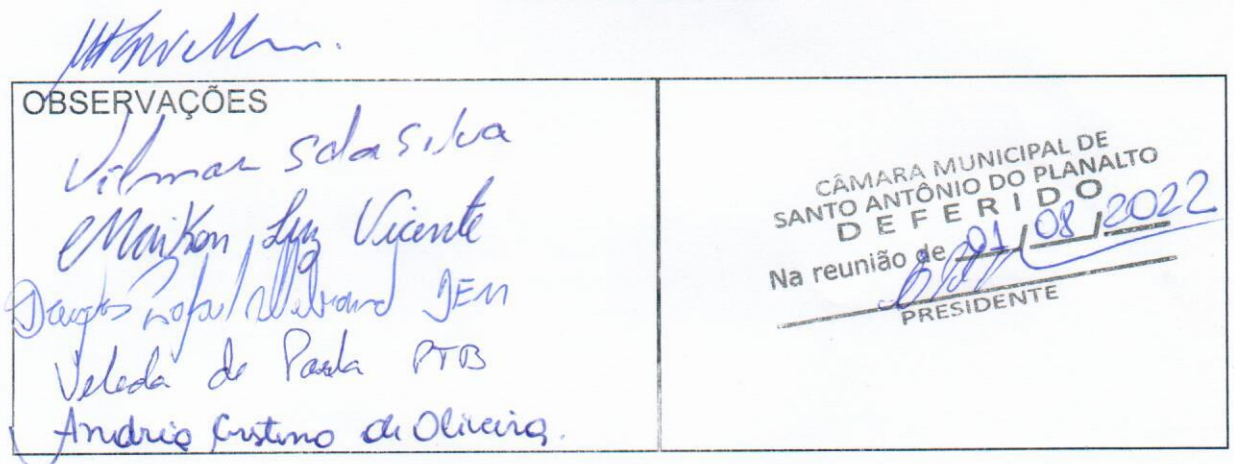 OBSERVAÇÕES
Vilmar S da Silva
Maikon Luz Vicente
Douglas DEM
Veleda de Paula PTB
Andréia Cristina de Oliveira.
CÂMARA MUNICIPAL DE
SANTO ANTÔNIO DO PLANALTO
DEFERIDO
Na reunião de 01/08/2022
PRESIDENTE